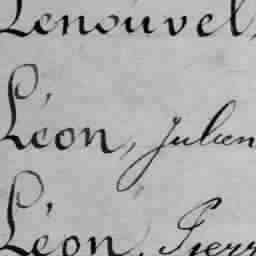 Lenouvel,
Léon, Julien
Léon, Pierr